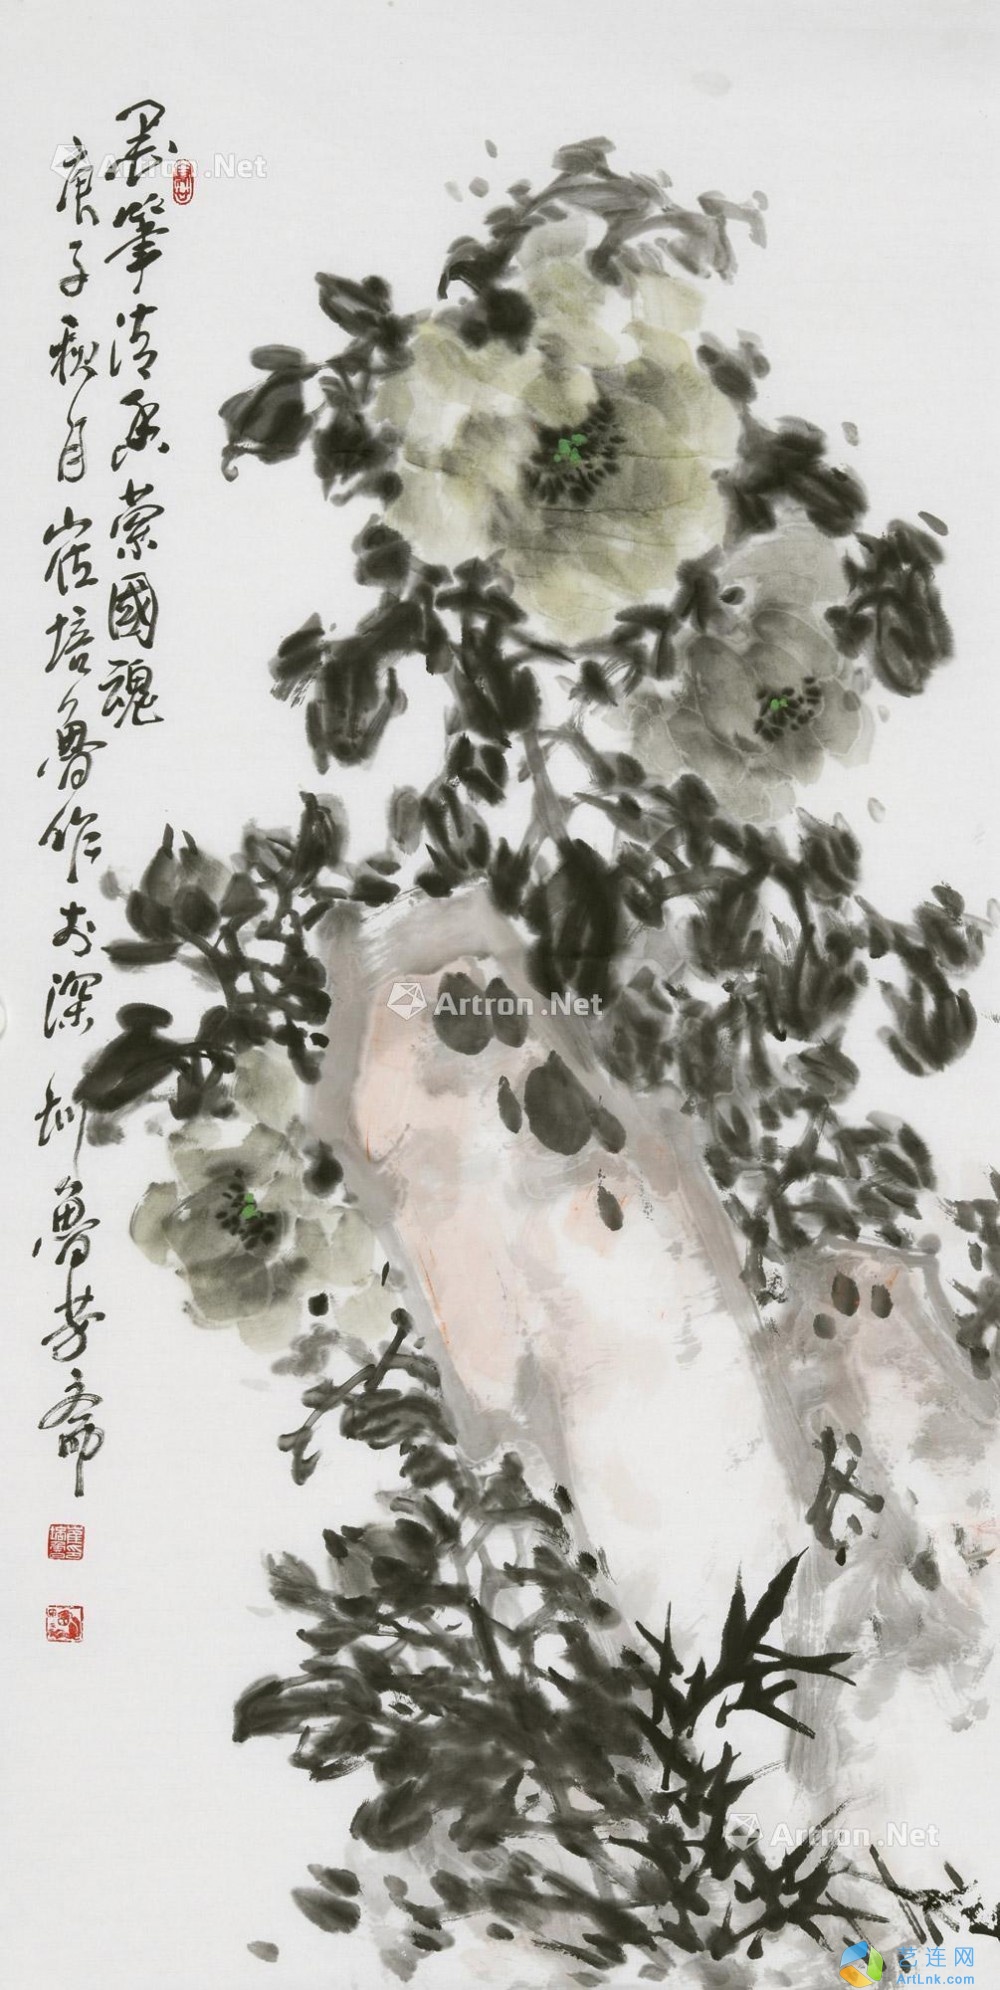 墨笔清香萦國魂
庚子秋月崔培魯作於深圳魯芳斋
Artron.Net
Artron.Net
Artron.Net
艺连网
ArtLnk.com